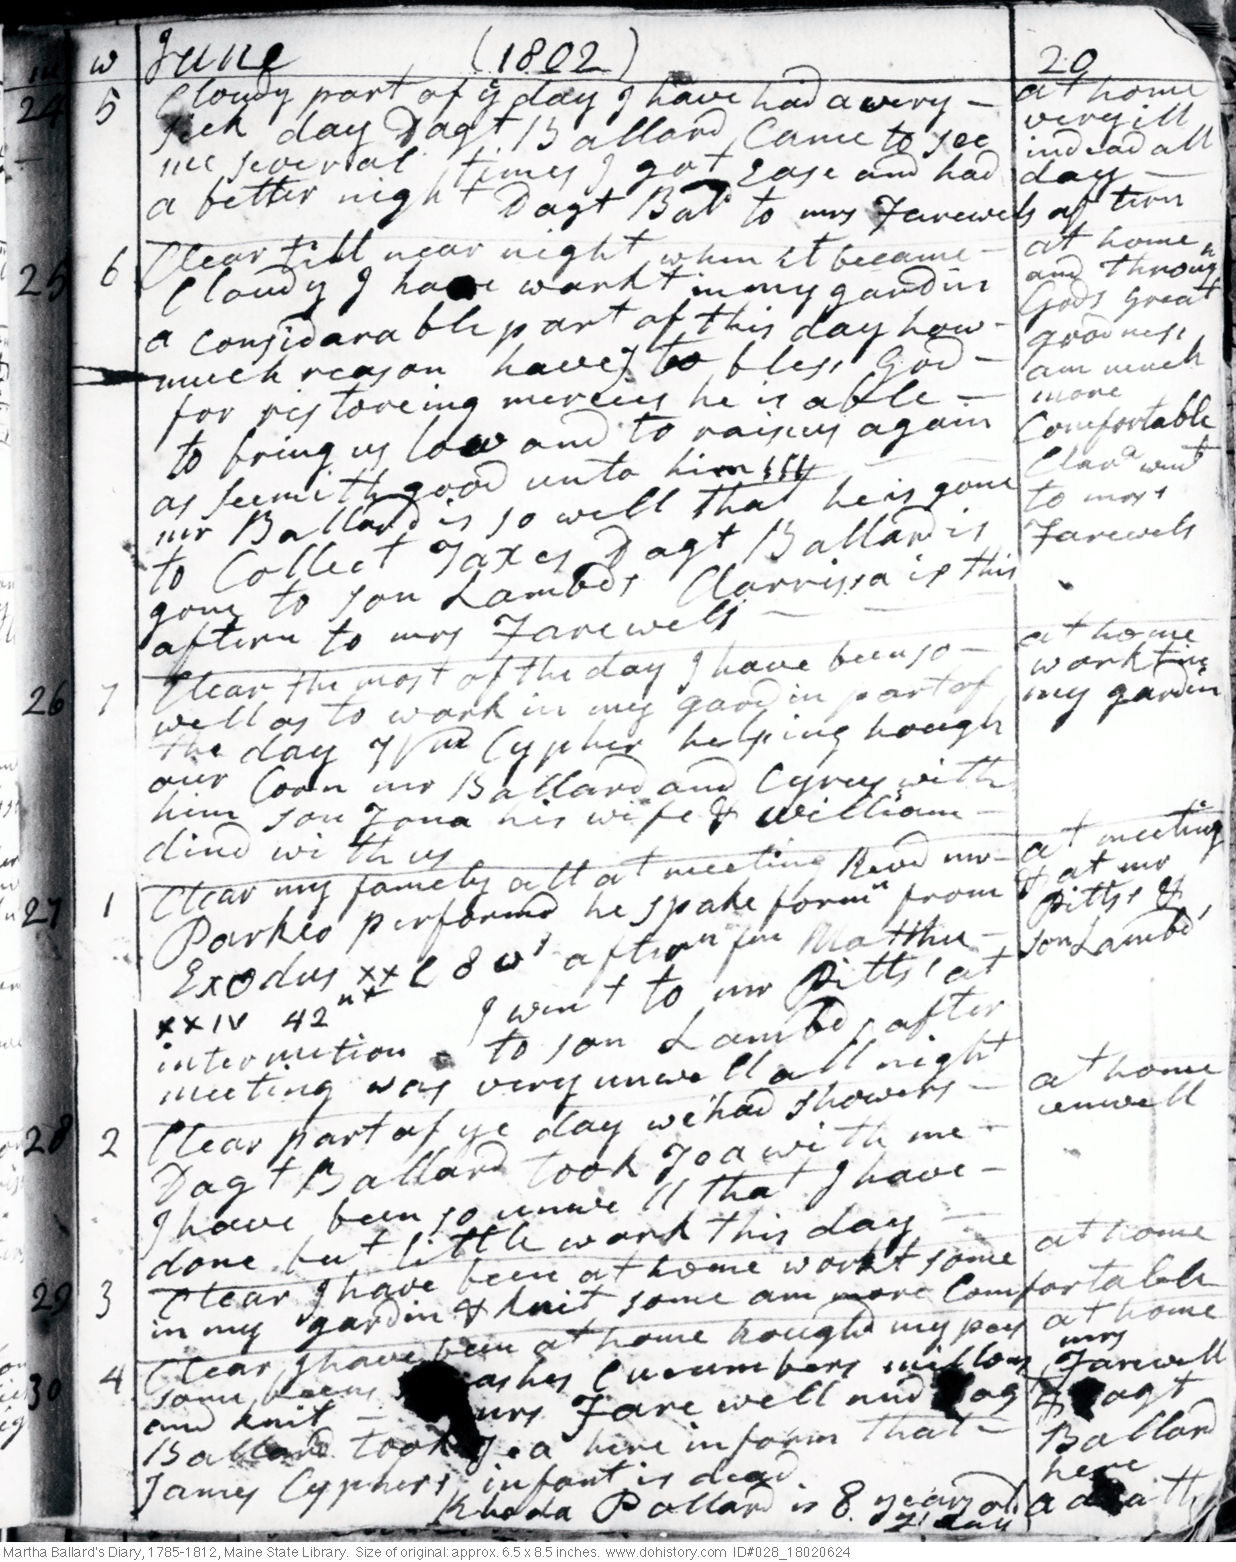 m w June (1802) 29
24 5 Cloudy part of ye day I have had a very - at home
sick day Dagt Ballard Came to see very ill
me several times I got Ease and had indead all
a better night Dagt Bal to mrs Farewels aftern day -
25 6 Clear till near night when it became - at home
Cloudy I have workt in my gardin and throug
a considarable part of this day how - Gods great
much reason have I to bless God - goodness
for ristoreing mercies he is able - am much
to bring us low and to raise us again more
as seemith good unto him Comfortable
mr Ballard is so well that he is gone Clara went
to Collect Taxes Dagt Ballard is to mrs
gone to son Lambds Clarrissa is this Farewels
aftern to mrs Farewels
26 7 Clear the most of the day I have been so - at home
well as to work in my gardin part of workt in
the day Wm Cypher helping hough my gardin
our Corn mr Ballard and Cyrus with
him son Jona his wife & William -
dind with us
27 1 Clear my famely all at meeting Revd mr - at meeting
Parker performd he spake form from & at mr
Exodus xx C 8 vs aftern fm Matthu - Pitts &
xxIV 42 I went to mr Pitts' at son Lambd
intermition to son Lambds after
meeting was very unwell all night
28 2 Clear part of ye day we had showers - at home
Dagt Ballard took Tea with me - unwell
I have been so unwell that I have -
done but little work this day
29 3 Clear I have been at home workt some at home
in my gardin & knit some am more Comfortable
30 4 Clear I have been at home houghd my pees at home
some beens Cucumbers millons mrs
and knit - mrs Farewell and Dagt Farewell
Ballard took Tea here inform that - & Dagt
James Cyphers infant is dead Ballard
Rhoda Pollard is 8 years old here
2 days a death
Martha Ballard's Diary, 1785-1812, Maine State Library. Size of original: approx. 6.5 x 8.5 inches. www.dohistory.com ID#028_18020624